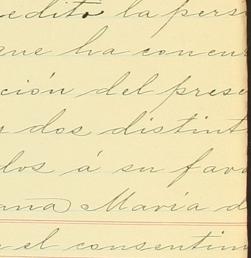 edito la pers
que ha concur
ción del prese
dos distint
dos á su favo
ana Maria d
el consentim